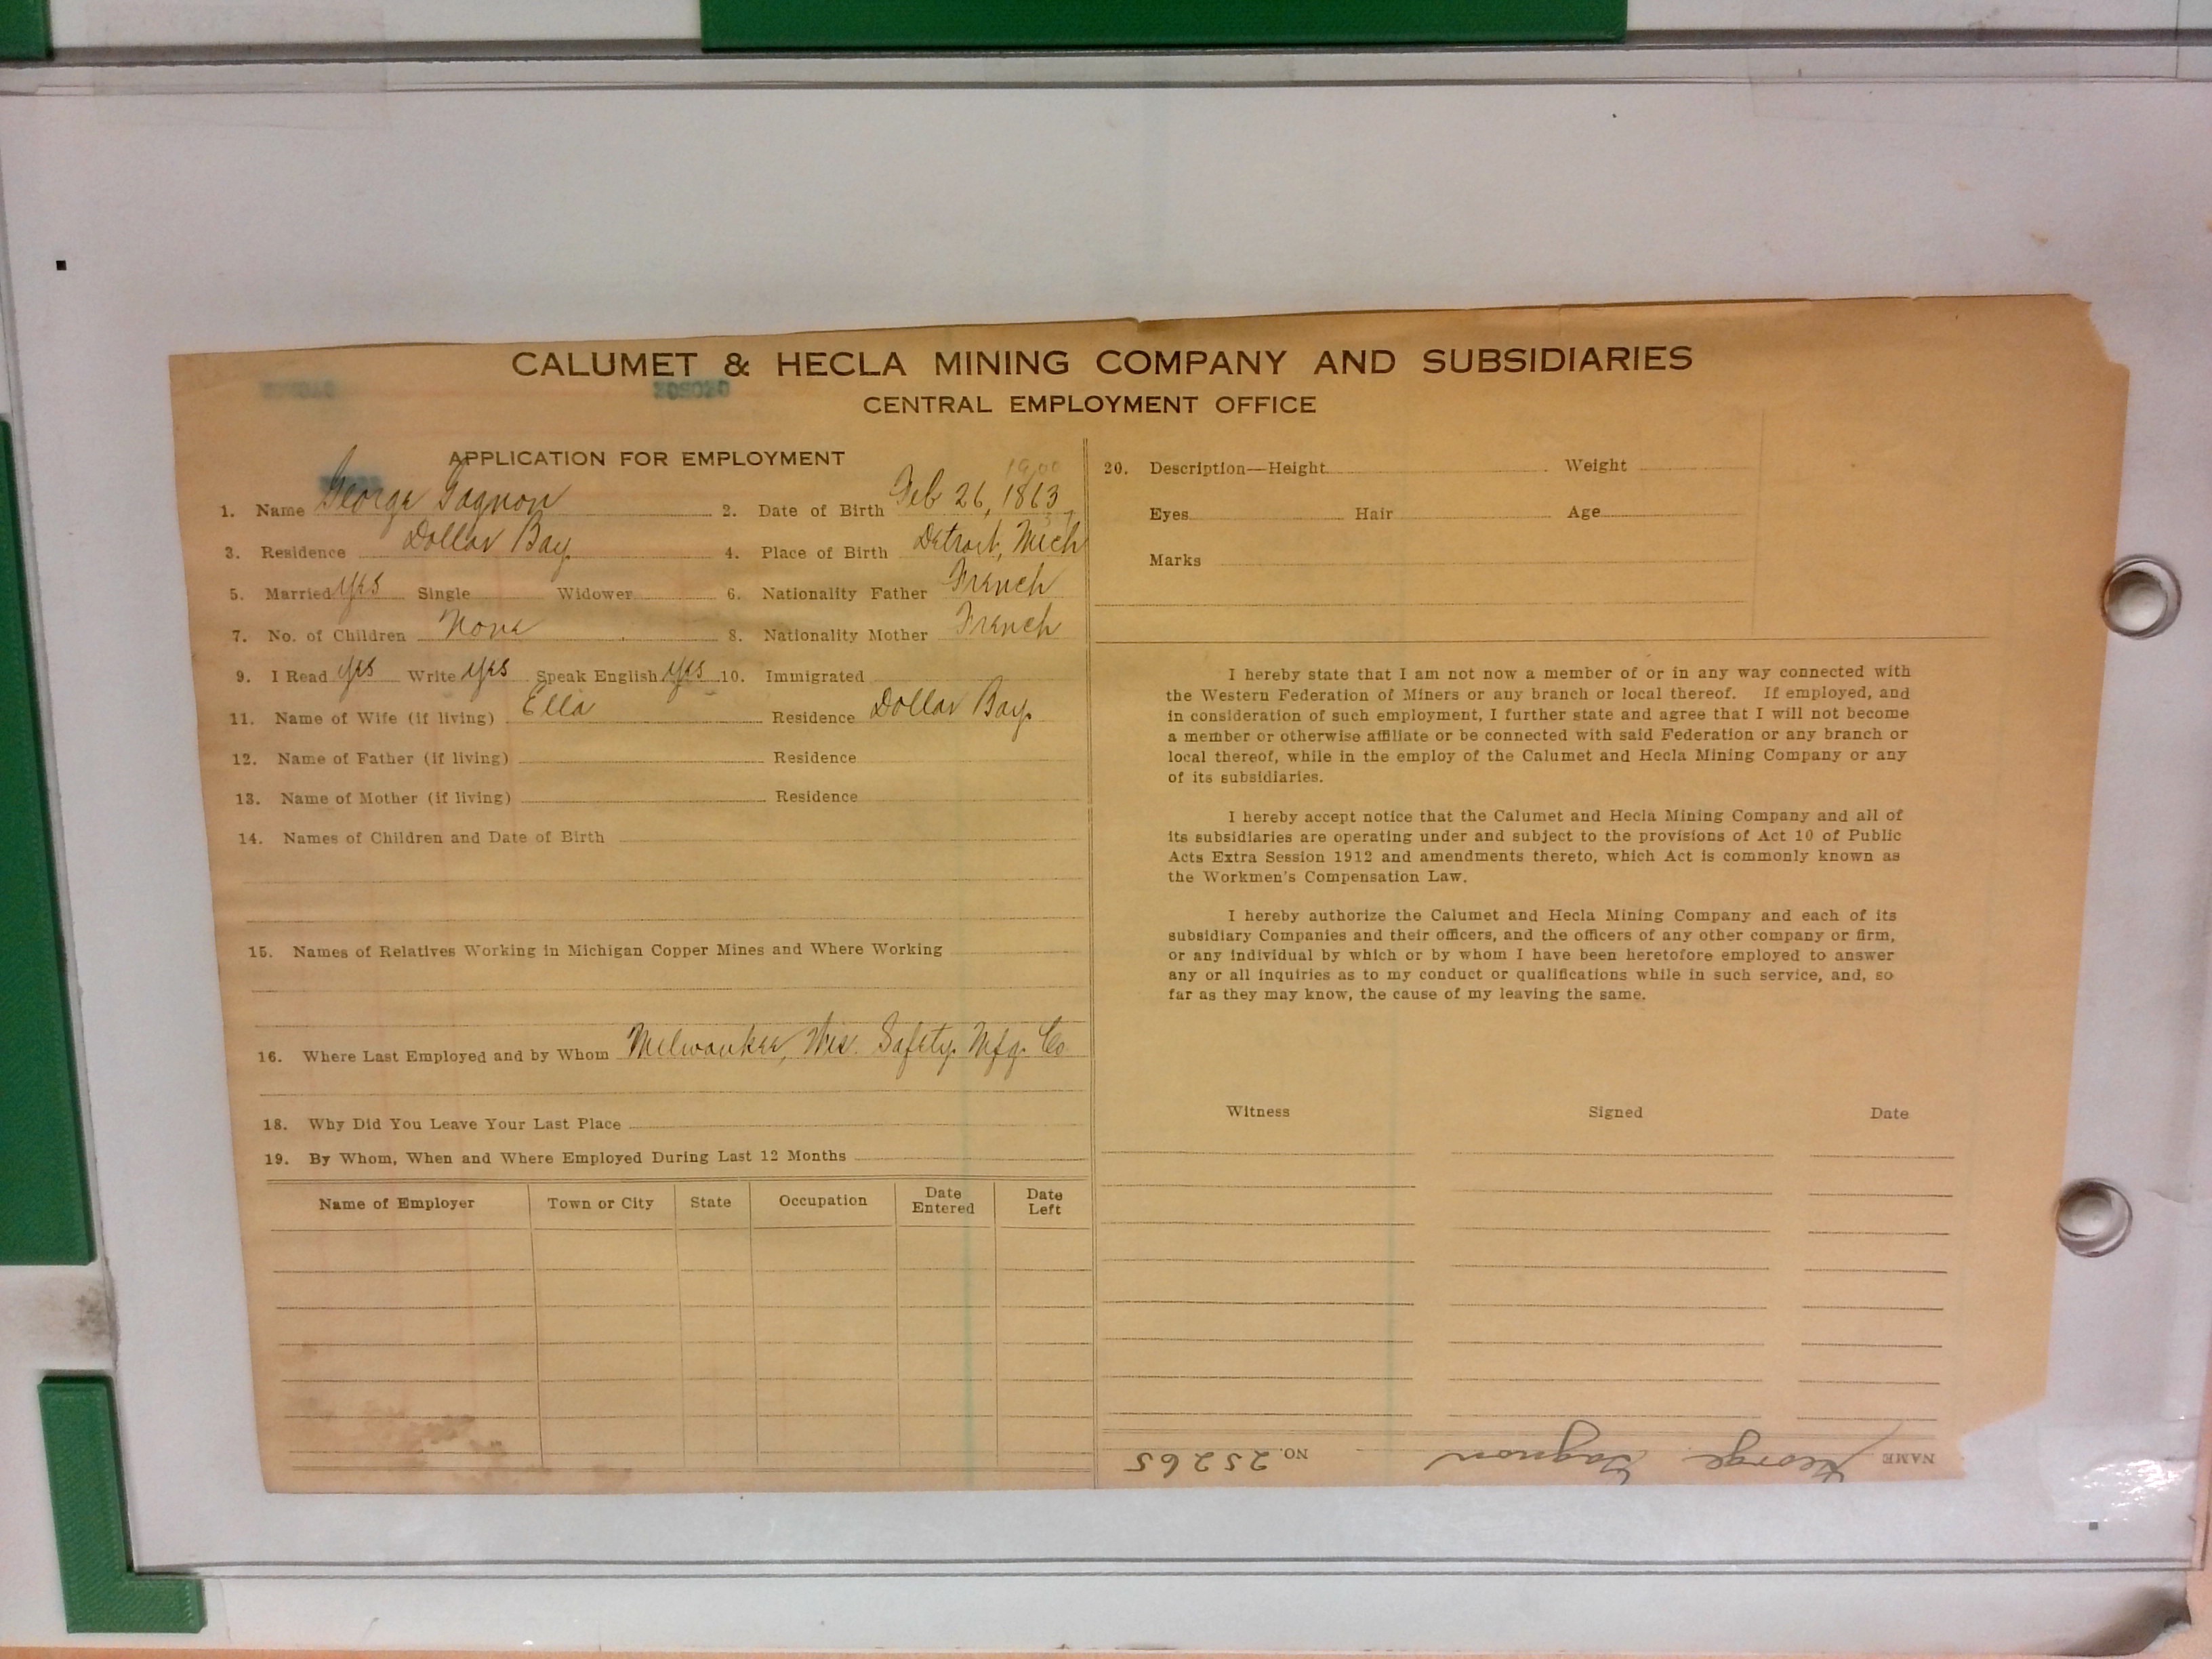 CALUMET & HECLA MINING COMPANY AND SUBSIDIARIES
CENTRAL EMPLOYMENT OFFICE
APPLICATION FOR EMPLOYMENT
1. Name George Gagnon 2. Date of Birth Feb 26, 1863
3. Residence Dollar Bay 4. Place of Birth Detroit, Mich
5. Married yes Single Widower 6. Nationality Father French
7. No. of Children None 8. Nationality Mother French
9. I Read yes Write yes Speak English yes 10. Immigrated
11. Name of Wife (if living) Ella Residence Dollar Bay
12. Name of Father (if living) Residence
13. Name of Mother (if living) Residence
14. Names of Children and Date of Birth
15. Names of Relatives Working in Michigan Copper Mines and Where Working
16. Where Last Employed and by Whom Milwaukee, Wis. Safety Mfg. Co
18. Why Did You Leave Your Last Place
19. By Whom, When and Where Employed During Last 12 Months
Name of Employer Town or City State Occupation Date Entered Date Left
20. Description—Height Weight
Eyes Hair Age
Marks
I hereby state that I am not now a member of or in any way connected with
the Western Federation of Miners or any branch or local thereof. If employed, and
in consideration of such employment, I further state and agree that I will not become
a member or otherwise affiliate or be connected with said Federation or any branch or
local thereof, while in the employ of the Calumet and Hecla Mining Company or any
of its subsidiaries.
I hereby accept notice that the Calumet and Hecla Mining Company and all of
its subsidiaries are operating under and subject to the provisions of Act 10 of Public
Acts Extra Session 1912 and amendments thereto, which Act is commonly known as
the Workmen's Compensation Law.
I hereby authorize the Calumet and Hecla Mining Company and each of its
subsidiary Companies and their officers, and the officers of any other company or firm,
or any individual by which or by whom I have been heretofore employed to answer
any or all inquiries as to my conduct or qualifications while in such service, and, so
far as they may know, the cause of my leaving the same.
Witness Signed Date
NAME George Gagnon NO. 25265